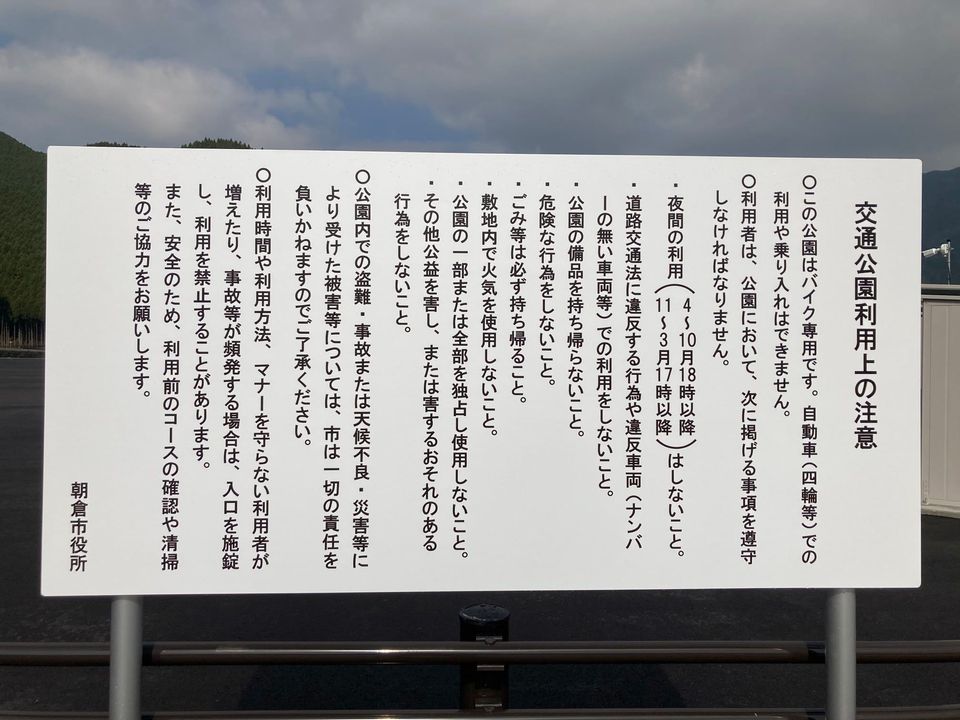 交通公園利用上の注意
〇この公園はバイク専用です。自動車(四輪等)での
利用や乗り入れはできません。
〇利用者は、公園において、次に掲げる事項を遵守
しなければなりません。
・夜間の利用(4~10月18時以降
11~3月17時以降)はしないこと。
・道路交通法に違反する行為や違反車両(ナンバ
ーの無い車両等)での利用をしないこと。
・公園の備品を持ち帰らないこと。
・危険な行為をしないこと。
・ごみ等は必ず持ち帰ること。
・敷地内で火気を使用しないこと。
・公園の一部または全部を独占し使用しないこと。
・その他公益を害し、または害するおそれのある
行為をしないこと。
〇公園内での盗難・事故または天候不良・災害等に
より受けた被害等については、市は一切の責任を
負いかねますのでご了承ください。
〇利用時間や利用方法、マナーを守らない利用者が
増えたり、事故等が頻発する場合は、入口を施錠
し、利用を禁止することがあります。
また、安全のため、利用前のコースの確認や清掃
等のご協力をお願いします。
朝倉市役所